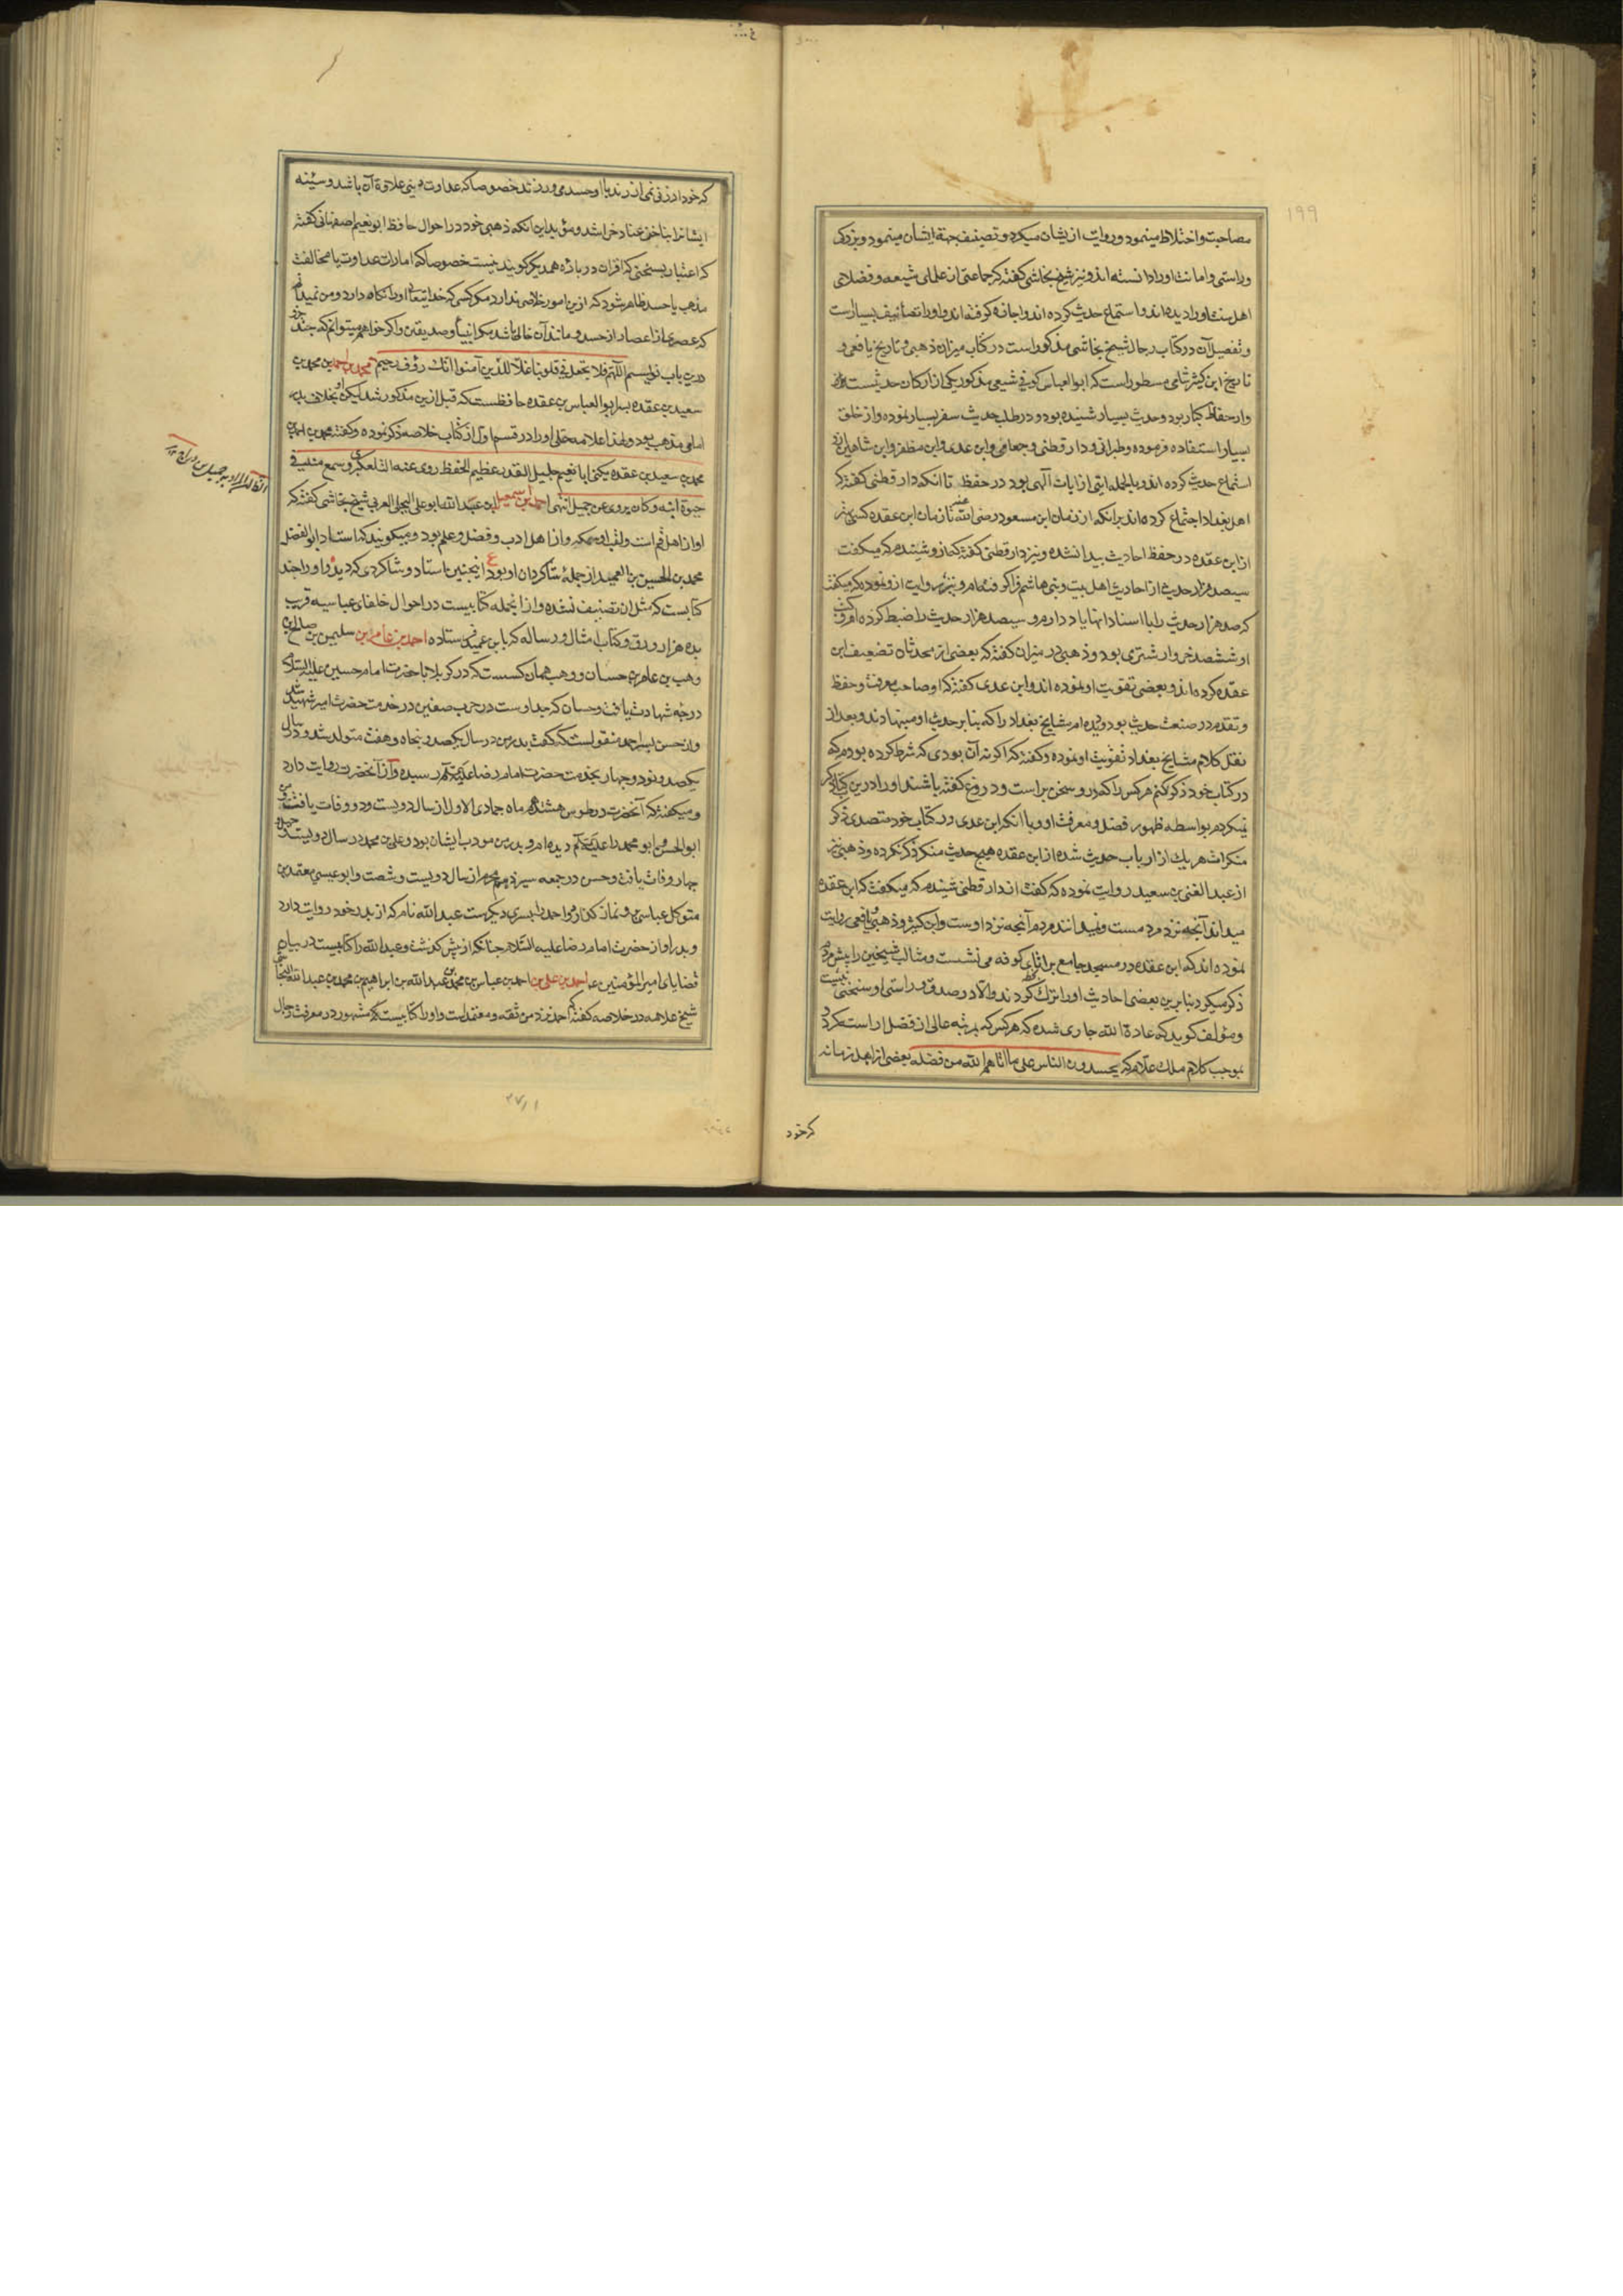 ۱۹۹
مصاحبت و اختلاط مینمود و روایت ازیشان میکرد و تصنیف جهة ایشان مینمود و بزرکی
و راستی و امانت او را دانسته اند و نیز شیخ نجاشی کفته که جماعتی از علمای شیعه و فضلای
اهل سنت او را دیده اند و استماع حدیث کرده اند و اجازه کرفته اند و او را تصانیف بسیارست
و تفصیل آن در کتاب رجال شیخ نجاشی مذکور است در کتاب میزان ذهبی و تاریخ یافعی و
تاریخ ابن کثیر شامی مسطور است که ابو العباس کوفی شیعی مذکور یکی از ارکان حدیثست
و از حفاظ کبار بود و حدیث بسیار شنیده بود و در طلب حدیث سفر بسیار نموده و از خلق
بسیار استفاده فرموده و طبرانی و دار قطنی و جعابی و ابن عدی و ابن مظفر و ابن شاهین ازو
استماع حدیث کرده اند و بالجمله ایتی از ایات آلهی بود در حفظ تا انکه دار قطنی کفته که
اهل بغداد اجتماع کرده اند برانکه از زمان ابن مسعود رضی الله عنه تا زمان ابن عقده کسی
از ابن عقده در حفظ احادیث پیدا نشده و نیز دار قطنی کفته که ازو شنیدم که میکفت
سیصد هزار حدیث از احادیث اهل بیت و بنی هاشم فرا کرفته ام و نیز روایت ازو نموده که میکفت
که صد هزار حدیث را با اسناد انها یاد دارم و سیصد هزار حدیث را ضبط کرده ام و کتب
او ششصد خروار شتری بود و ذهبی در میزان کفته که بعضی از محدثان تضعیف ابن
عقده کرده اند و بعضی تقویت او نموده اند و ابن عدی کفته که او صاحب معرفت و حفظ
و تقدم در صنعت حدیث بود و دیده ام مشایخ بغداد را که بنا بر حدیث او مینهادند و بعد از
نقل کلام مشایخ بغداد تقویت او نموده و کفته که اکر نه آن بودی که شرط کرده بودم که
در کتاب خود ذکر کنم هر کس را که درو سخن براست و دروغ کفته باشند او را درین کتاب ذکر
نمیکردم بواسطه ظهور فضل و معرفت او و با انکه ابن عدی در کتاب خود متصدی ذکر
منکرات هر یک از ارباب حدیث شده از ابن عقده هیچ حدیث منکر ذکر نکرده و ذهبی نیز
از عبد الغنی بن سعید روایت نموده که کفت از دار قطنی شنیدم که میکفت که ابن عقده
میداند آنچه نزد مردمست و نمیدانند مردم آنچه نزد اوست و ابن کثیر و ذهبی و یافعی روایت
نموده اند که ابن عقده در مسجد جامع براثای کوفه می نشست و مثالب شیخین را پیش مردم
ذکر میکرد بنا برین بعضی احادیث او را ترک کردند و الا در صدق و راستی او سخنی نیست
و مؤلف کوید که عادة الله جاری شده که هر کس که بمرتبه عالی از فضل اراسته کردد
بموجب کلام ملک علام که یحسدون الناس علی ما اتاهم الله من فضله بعضی از اهل زمانه
که خود
که خود را در نمی ارند با او حسد می ورزند خصوصا که عداوت دینی علاقهٔ آن باشد و سینه
ایشانرا بناخن عناد خراشد و مؤید این انکه ذهبی خود در احوال حافظ ابو نعیم اصفهانی کفته
که اعتبار بسخنی که اقران در باره همدیکر کویند نیست خصوصا که امارات عداوت یا مخالفت
مذهب یا حسد ظاهر شود که ازین امور خلاصی ندارد مکر کسی که خدایتعالی او را نکاه دارد و من نمیدانم
که عصری از اعصار از حسد و مانند آن خالی باشد مکر انبیا و صدیقین و اکر خواهم میتوانم که چند جزو
درین باب نویسم اللهم فلا تجعل فی قلوبنا غلا للذین آمنوا انک رؤف رحیم محمد بن احمد بن محمد بن
سعید بن عقده پسر ابو العباس بن عقده حافظست که قبل ازین مذکور شد لیکن او بخلاف پدر
امامی مذهب بود و لهذا علامه حلی او را در قسم اول از کتاب خلاصه ذکر نموده و کفته محمد بن احمد بن
محمد بن سعید بن عقده یکنی ابا نعیم جلیل القدر عظیم الحفظ روی عنه التلعکبری و سمع منه فی
حیوة ابیه و کان یروی عن جمیل انتهی احمد بن اسمعیل بن عبد الله ابو علی البجلی العربی شیخ نجاشی کفته که
او از اهل قم است و لقب او سمکه و از اهل ادب و فضل و علم بود و میکویند که استاد ابو الفضل
محمد بن الحسین بن العمید از جمله شاکردان او بود اینچنین استاد و شاکردی که دیده و او را چند
کتابست که مثل ان تصنیف نشده و از انجمله کتابیست در احوال خلفای عباسیه قریب
بده هزار ورق و کتاب امثال و رساله که بابن عمید فرستاده احمد بن عامر بن سلیمن بن صالح بن
وهب بن عامر بن حسان و وهب همان کسست که در کربلا با حضرت امام حسین علیه السلام
درجه شهادت یافت و حسان که جد اوست در حرب صفین در خدمت حضرت امیر شهید شد
و از حسن پسر احمد منقولست که کفت پدر من در سال یکصد و پنجاه و هفت متولد شد و در سال
یکصد و نود و چهار بخدمت حضرت امام رضا علیه السلام رسیده و از آنحضرت روایت دارد
و میکفته که آنحضرت در طوس هشتدهم ماه جمادی الاول از سال دویست و دو وفات یافت و من
ابو الحسن و ابو محمد را علیهما السلام دیده ام و پدر من مودب ایشان بود و علی بن محمد در سال دویست و چهل و
چهار وفات یافت و حسن در جمعه سیزدهم محرم از سال دویست و شصت و ابو عیسی معتمد بن
متوکل عباسی برو نماز کذارد و احمد را پسری دیکرست عبد الله نام که از پدر خود روایت دارد
و پدر او از حضرت امام رضا علیه السلام چنانکه از پیش کذشت و عبد الله را کتابیست در بیان
قضایای امیر المؤمنین ع احمد بن علی بن احمد بن عباس بن محمد بن عبد الله بن ابراهیم بن محمد بن عبد الله النجاشی
شیخ علامه در خلاصه کفته که احمد نزد من ثقه و معتمد است و او را کتابیست که مشهور در معرفت رجال